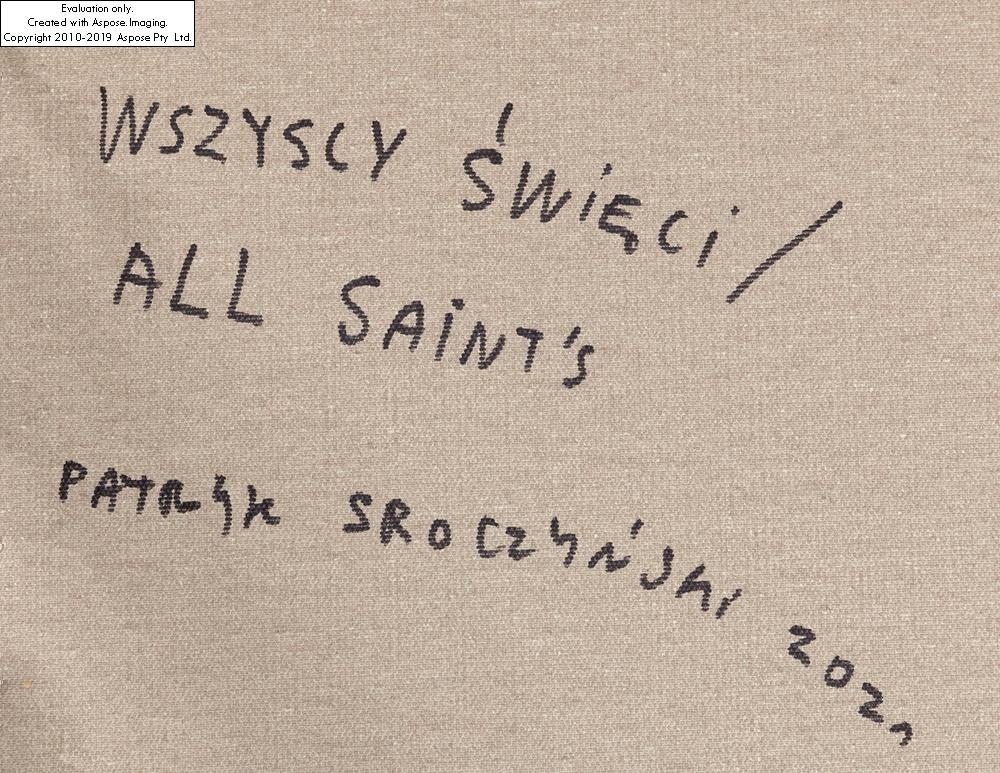 Evaluation only.
Created with Aspose.Imaging.
Copyright 2010-2019 Aspose Pty Ltd.
WSZYSCY ŚWIĘCI /
ALL SAINT'S
PATRYK SROCZYŃSKI 2021